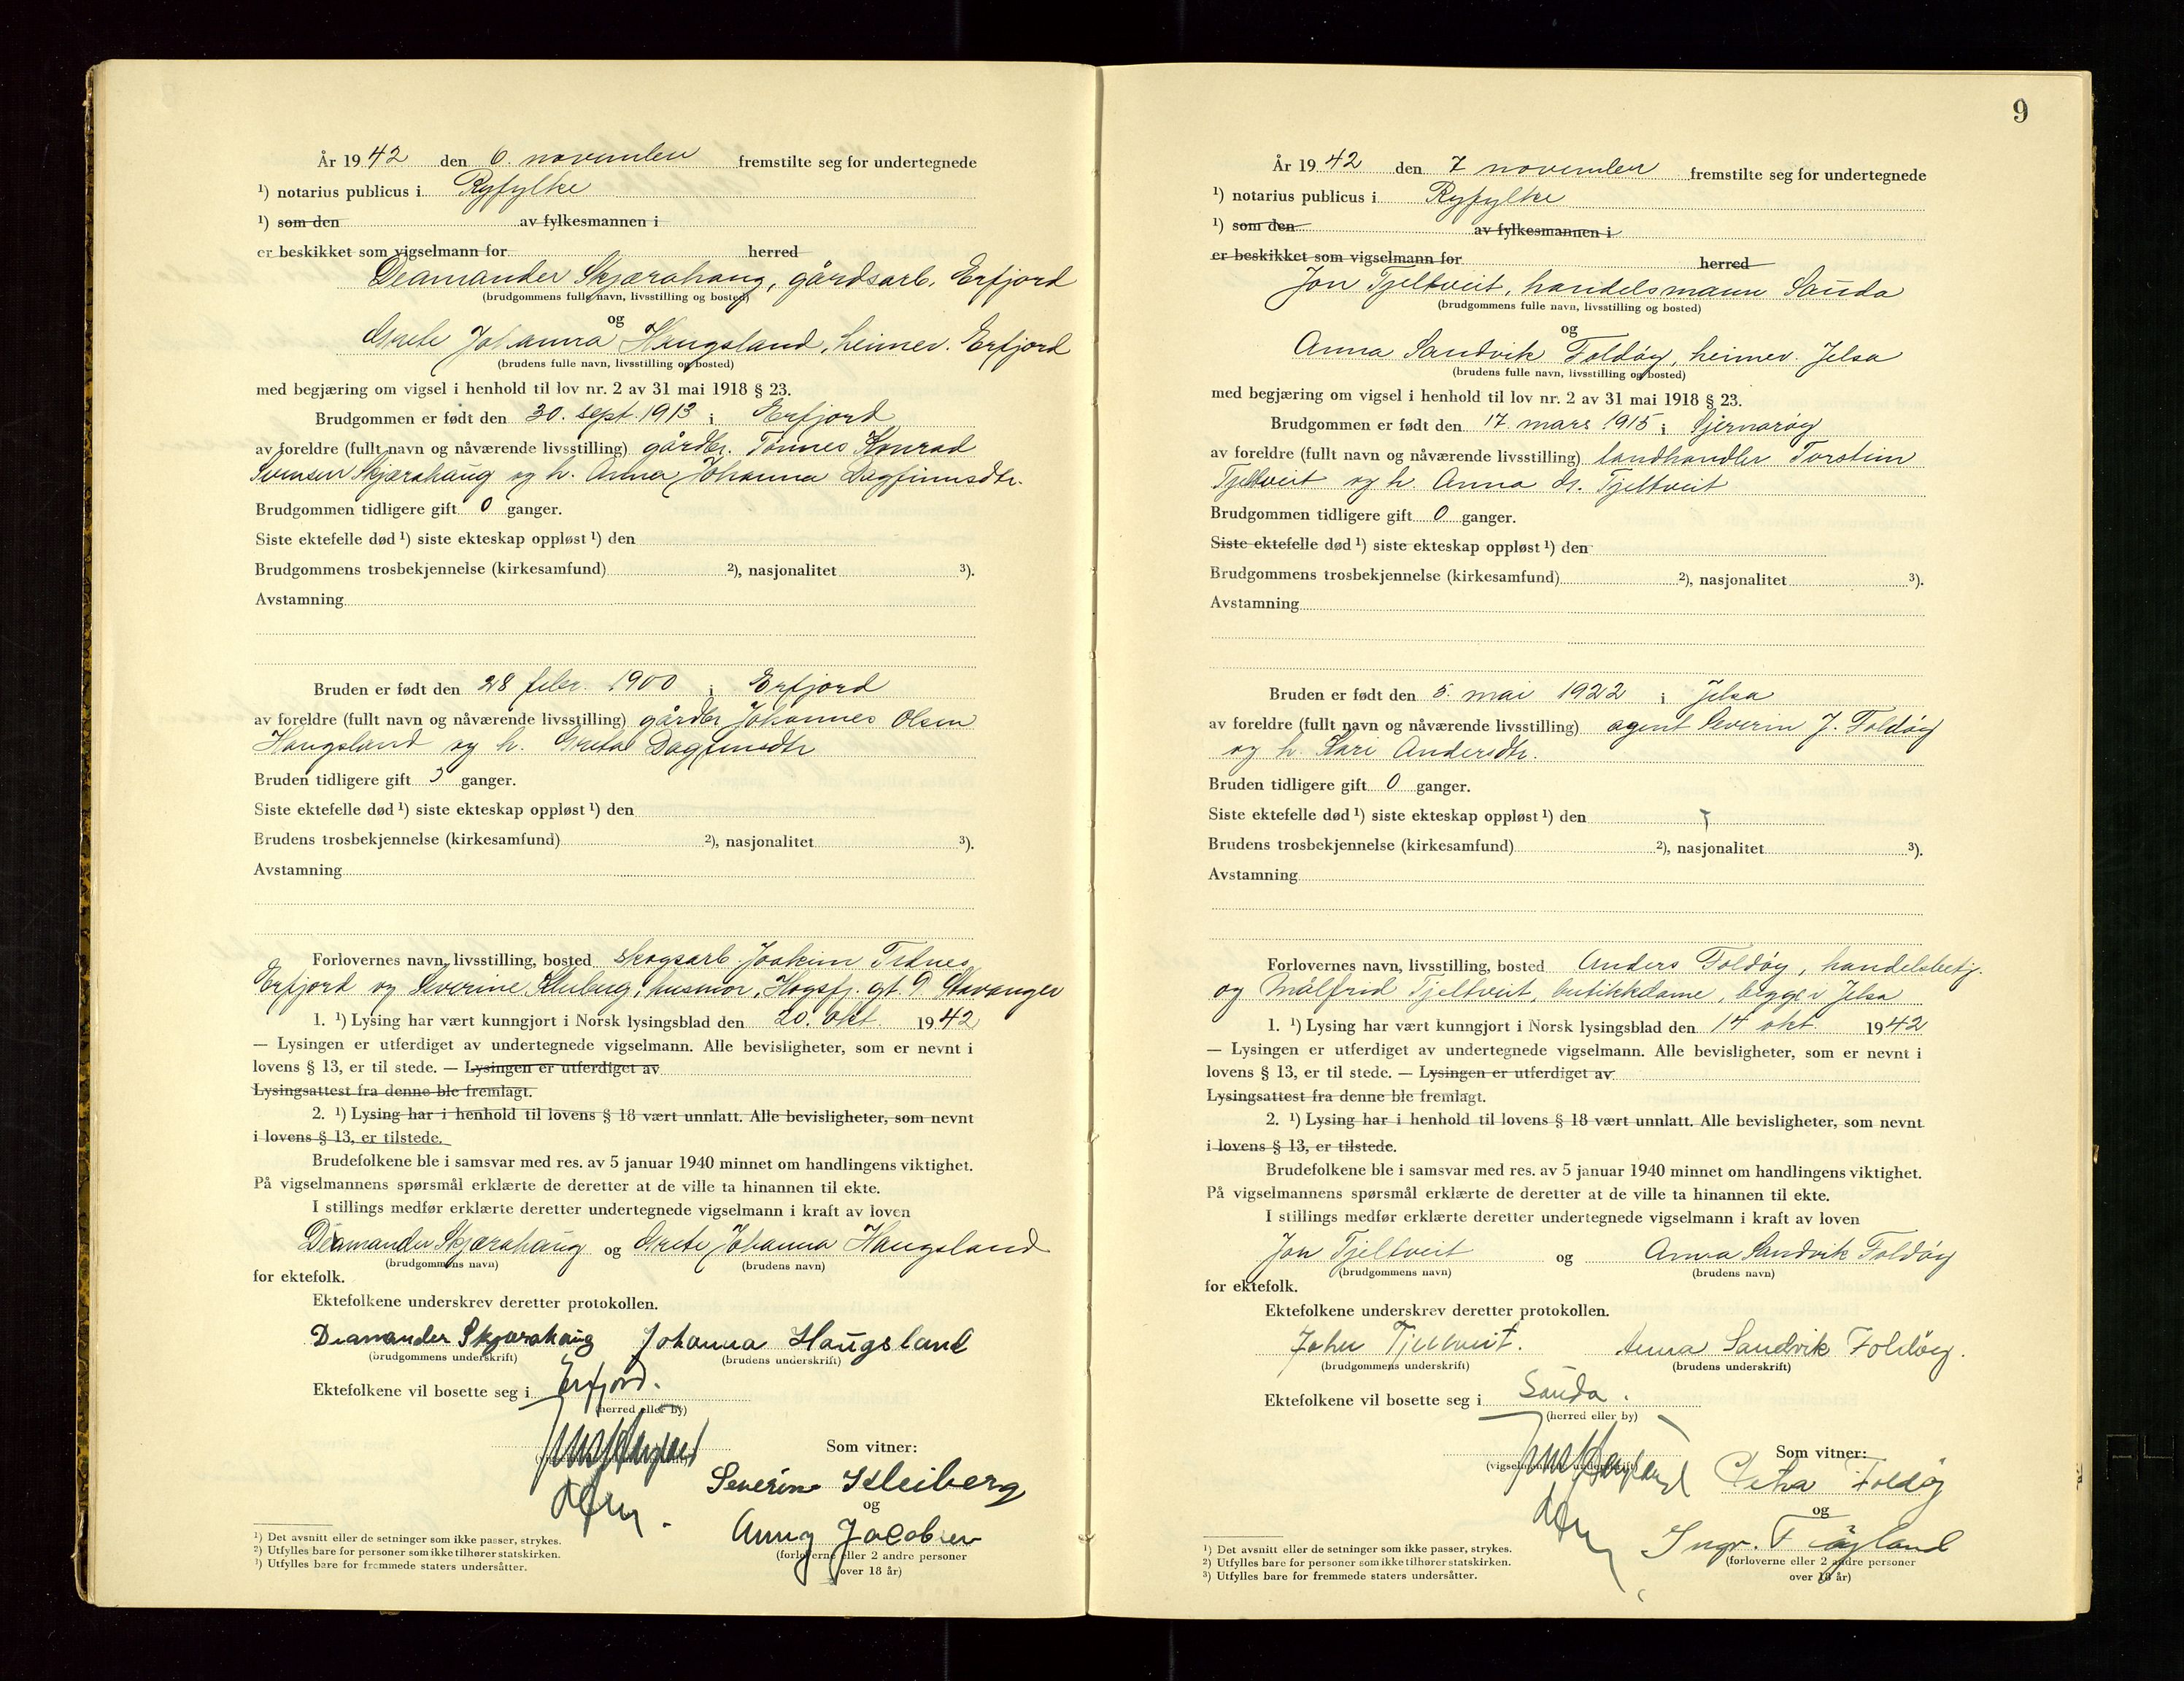 År 1942 den 6. november fremstilte seg for undertegnede
¹) notarius publicus i Ryfylke
¹) som den av fylkesmannen i
er beskikket som vigselmann for herred
Deamander Skjærahaug, gårdsarb. Erfjord
(brudgommens fulle navn, livsstilling og bosted)
og
Grete Johanna Haugsland, heimev. Erfjord
(brudens fulle navn, livsstilling og bosted)
med begjæring om vigsel i henhold til lov nr. 2 av 31 mai 1918 § 23.
Brudgommen er født den 30. sept. 1913 i Erfjord
av foreldre (fullt navn og nåværende livsstilling) gårdbr. Tønnes Konrad
Svensen Skjærahaug og h. Anna Johanna Dagfinnsdtr.
Brudgommen tidligere gift 0 ganger.
Siste ektefelle død ¹) siste ekteskap oppløst ¹) den
Brudgommens trosbekjennelse (kirkesamfund) ²), nasjonalitet ³).
Avstamning
Bruden er født den 28 febr. 1900 i Erfjord
av foreldre (fullt navn og nåværende livsstilling) gårdbr Johannes Olsen
Haugsland og h. Dagfinsdtr
Bruden tidligere gift ganger.
Siste ektefelle død ¹) siste ekteskap oppløst ¹) den
Brudens trosbekjennelse (kirkesamfund) ²), nasjonalitet ³).
Avstamning
Forlovernes navn, livsstilling, bosted skogsarb. Joakim
Erfjord og Severine Kleiberg, husmor, Høgsfj. gt. 9 Stavanger
1. ¹) Lysing har vært kunngjort i Norsk lysingsblad den 20. okt. 1942
— Lysingen er utferdiget av undertegnede vigselmann. Alle bevisligheter, som er nevnt i
lovens § 13, er til stede. — Lysingen er utferdiget av
Lysingsattest fra denne ble fremlagt.
2. ¹) Lysing har i henhold til lovens § 18 vært unnlatt. Alle bevisligheter, som nevnt
i lovens § 13, er tilstede.
Brudefolkene ble i samsvar med res. av 5 januar 1940 minnet om handlingens viktighet.
På vigselmannens spørsmål erklærte de deretter at de ville ta hinannen til ekte.
I stillings medfør erklærte deretter undertegnede vigselmann i kraft av loven
Deamander Skjærahaug og Grete Johanna Haugsland
(brudgommens navn) (brudens navn)
for ektefolk.
Ektefolkene underskrev deretter protokollen.
Deamander Skjærahaug Johanna Haugsland
(brudgommens underskrift) (brudens underskrift)
Ektefolkene vil bosette seg i Erfjord.
(herred eller by)
Som vitner:
Severine Kleiberg
og
Anny Jacobsen
(forloverne eller 2 andre personer
over 18 år)
¹) Det avsnitt eller de setninger som ikke passer, strykes.
²) Utfylles bare for personer som ikke tilhører statskirken.
³) Utfylles bare for fremmede staters undersåtter.
9
År 1942 den 7 november fremstilte seg for undertegnede
¹) notarius publicus i Ryfylke
¹) som den av fylkesmannen i
er beskikket som vigselmann for herred
Jon Tjeltveit, handelsmann Sauda
(brudgommens fulle navn, livsstilling og bosted)
og
Anna Sandvik Foldøy, heimev. Jelsa
(brudens fulle navn, livsstilling og bosted)
med begjæring om vigsel i henhold til lov nr. 2 av 31 mai 1918 § 23.
Brudgommen er født den 17. mars 1915 i Sjernarøy
av foreldre (fullt navn og nåværende livsstilling) landhandler Torstein
Tjeltveit og h. Anna f. Tjeltveit
Brudgommen tidligere gift 0 ganger.
Siste ektefelle død ¹) siste ekteskap oppløst ¹) den
Brudgommens trosbekjennelse (kirkesamfund) ²), nasjonalitet ³).
Avstamning
Bruden er født den 5. mai 1922 i Jelsa
av foreldre (fullt navn og nåværende livsstilling) agent Severin J. Foldøy
og h. Kari Andersdtr.
Bruden tidligere gift 0 ganger.
Siste ektefelle død ¹) siste ekteskap oppløst ¹) den
Brudens trosbekjennelse (kirkesamfund) ²), nasjonalitet ³).
Avstamning
Forlovernes navn, livsstilling, bosted Anders Foldøy, handelsbetj.
og Målfrid Tjeltveit, butikkdame, begge i Jelsa
1. ¹) Lysing har vært kunngjort i Norsk lysingsblad den 14 okt. 1942
— Lysingen er utferdiget av undertegnede vigselmann. Alle bevisligheter, som er nevnt i
lovens § 13, er til stede. — Lysingen er utferdiget av
Lysingsattest fra denne ble fremlagt.
2. ¹) Lysing har i henhold til lovens § 18 vært unnlatt. Alle bevisligheter, som nevnt
i lovens § 13, er tilstede.
Brudefolkene ble i samsvar med res. av 5 januar 1940 minnet om handlingens viktighet.
På vigselmannens spørsmål erklærte de deretter at de ville ta hinannen til ekte.
I stillings medfør erklærte deretter undertegnede vigselmann i kraft av loven
Jon Tjeltveit og Anna Sandvik Foldøy
(brudgommens navn) (brudens navn)
for ektefolk.
Ektefolkene underskrev deretter protokollen.
John Tjeltveit. Anna Sandvik Foldøy.
(brudgommens underskrift) (brudens underskrift)
Ektefolkene vil bosette seg i Sauda.
(herred eller by)
(vigselmannens underskrift)
Som vitner:
Foldøy
og
Ingv.
(forloverne eller 2 andre personer
over 18 år)
¹) Det avsnitt eller de setninger som ikke passer, strykes.
²) Utfylles bare for personer som ikke tilhører statskirken.
³) Utfylles bare for fremmede staters undersåtter.